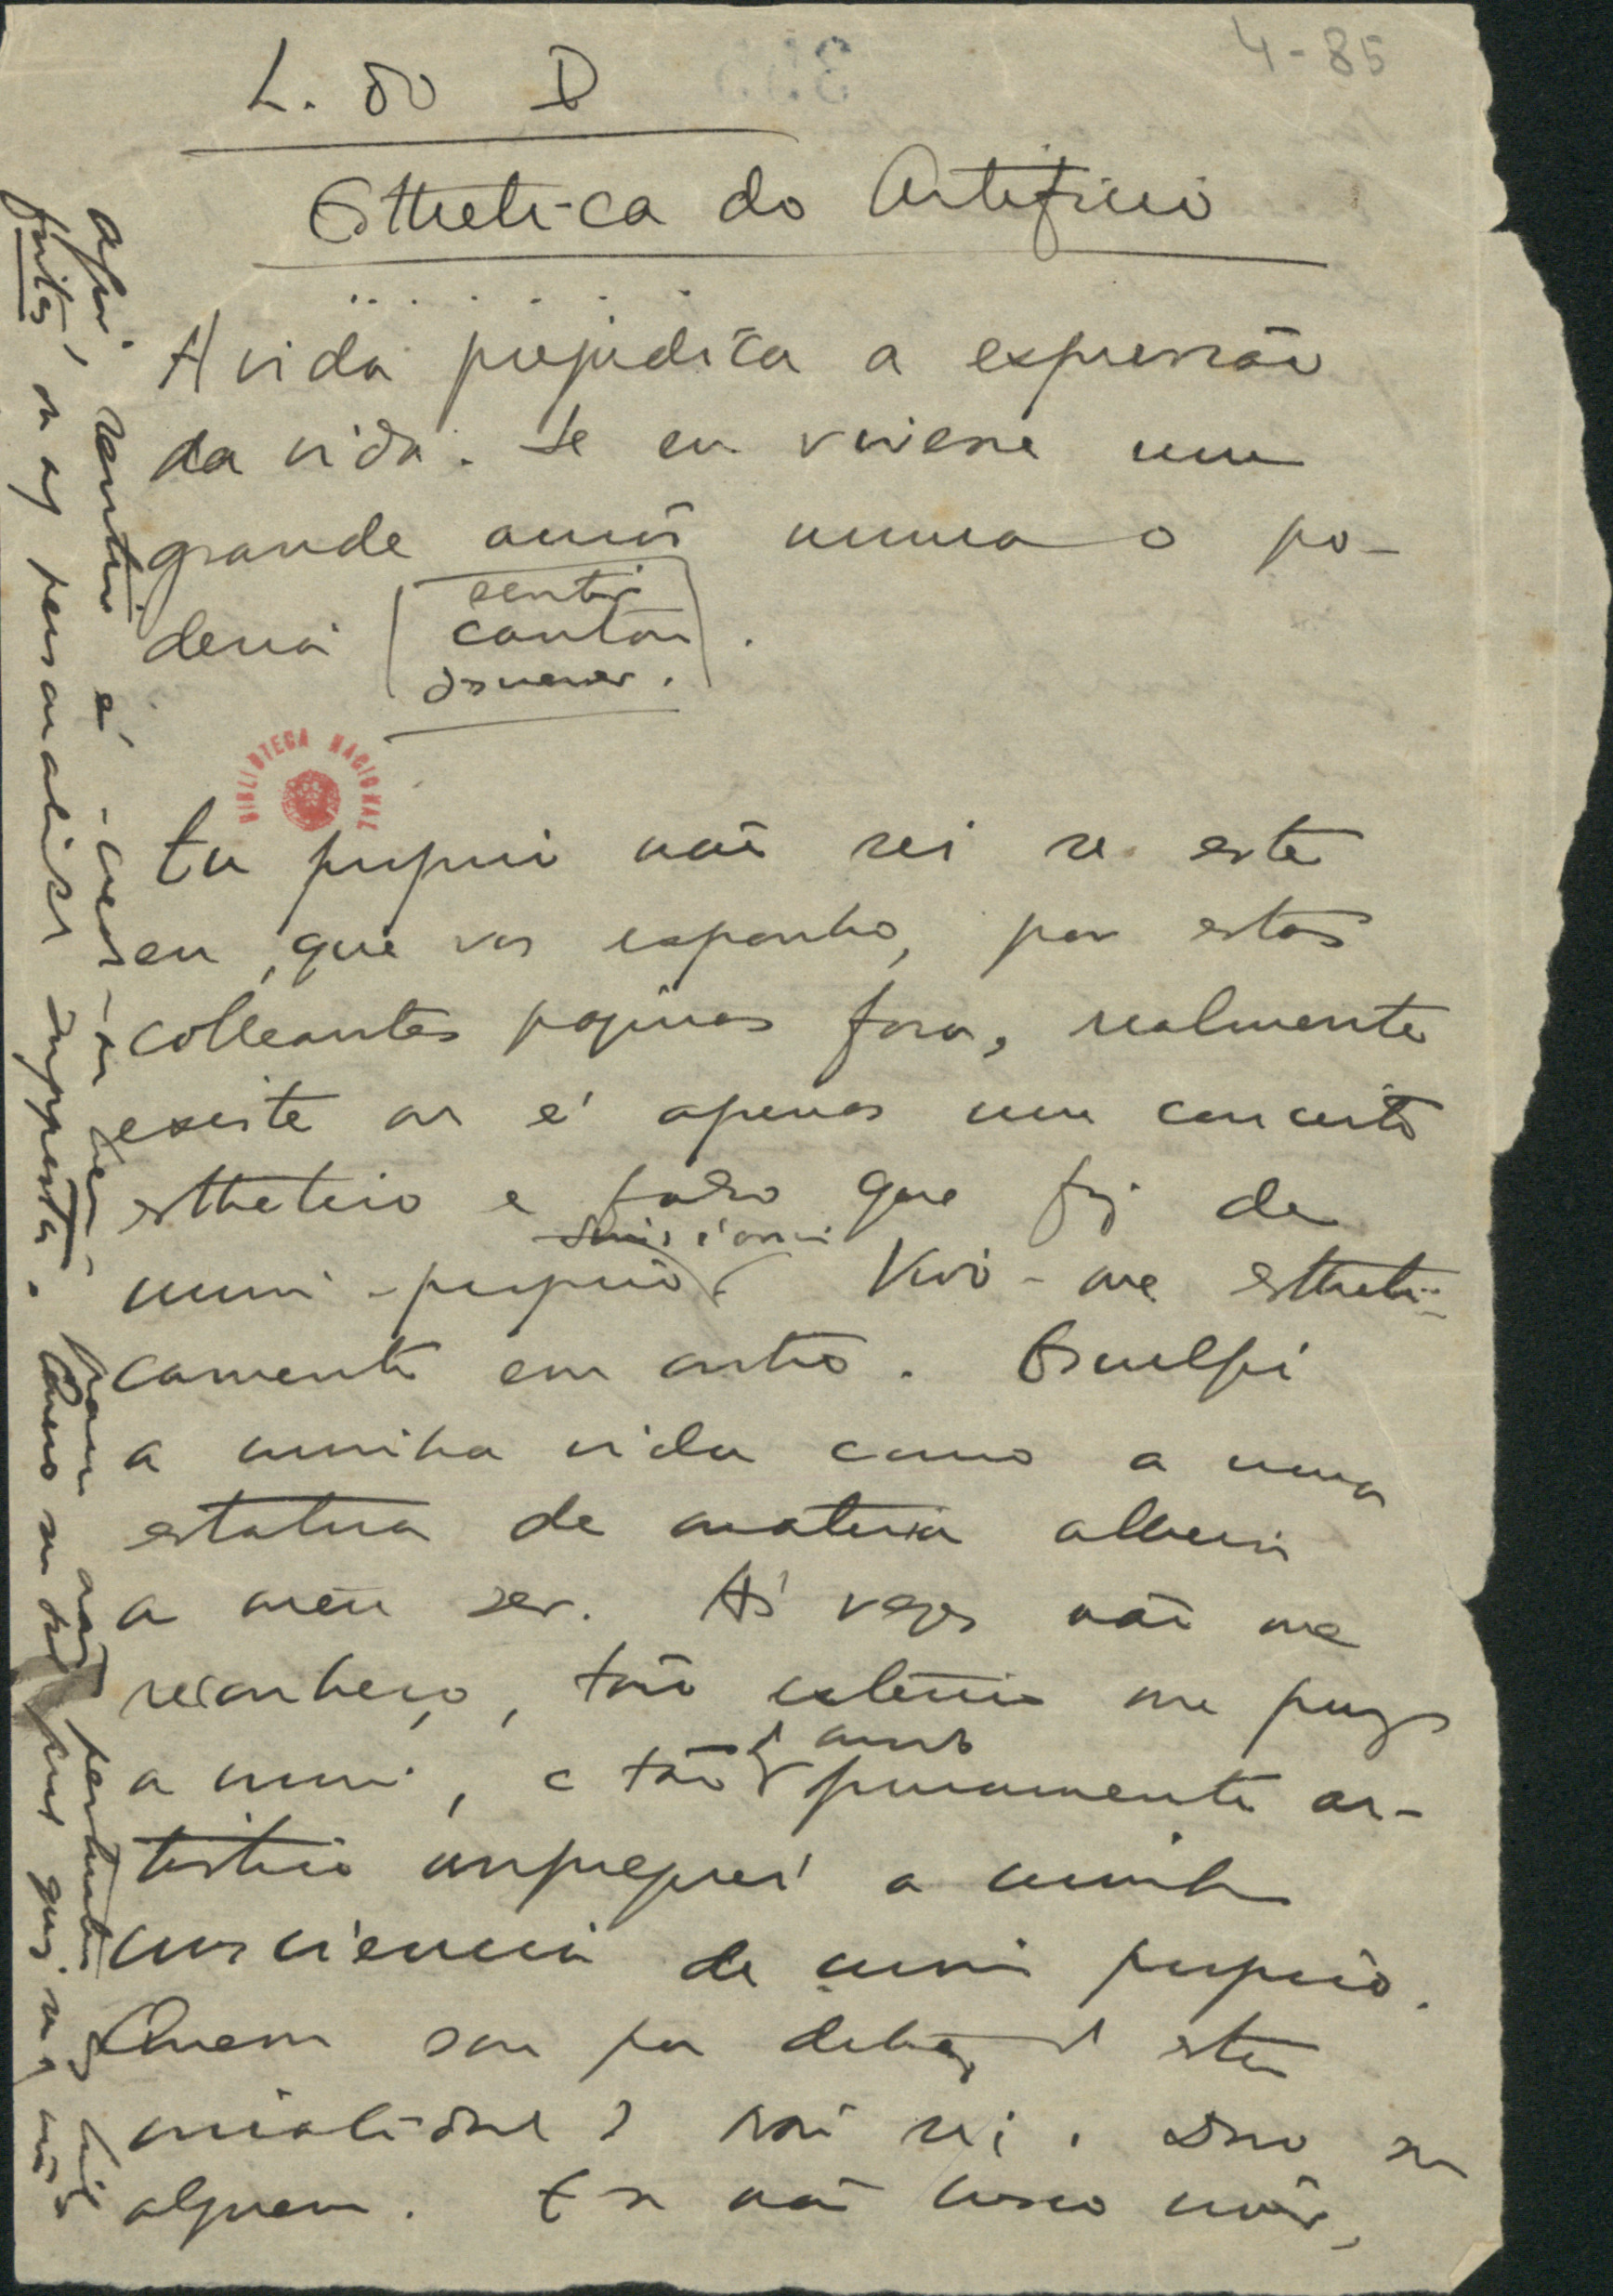 4-85
L. do D
Esthetica do Artificio
A vida prejudica a expressão
da vida. Se eu vivesse um
grande amor nunca o po-
deria
sentir
contar
descrever.
BIBLIOTECA NACIONAL
Eu proprio não sei se este
eu, que vos exponho, por estas
colleantes paginas fora, realmente
existe ou é apenas um conceito
esthetico e falso que fiz de
mim proprio. Vivo-me estheti-
camente em outro. Esculpi
a minha vida como a uma
estatua de materia alheia
a meu ser. Ás vezes não me
reconheço, tão exterior me puz
a mim, e tão
puramente ar-
tistico empreguei a minha
consciencia de mim proprio.
Quem sou por detraz d'esta
irrealidade? Não sei. Devo ser
alguem. E se não busco viver,
agir, sentir é - crede-me bem - para não perturbar
feitas da personalidade supposta. Quero ser tal qual quiz ser e não